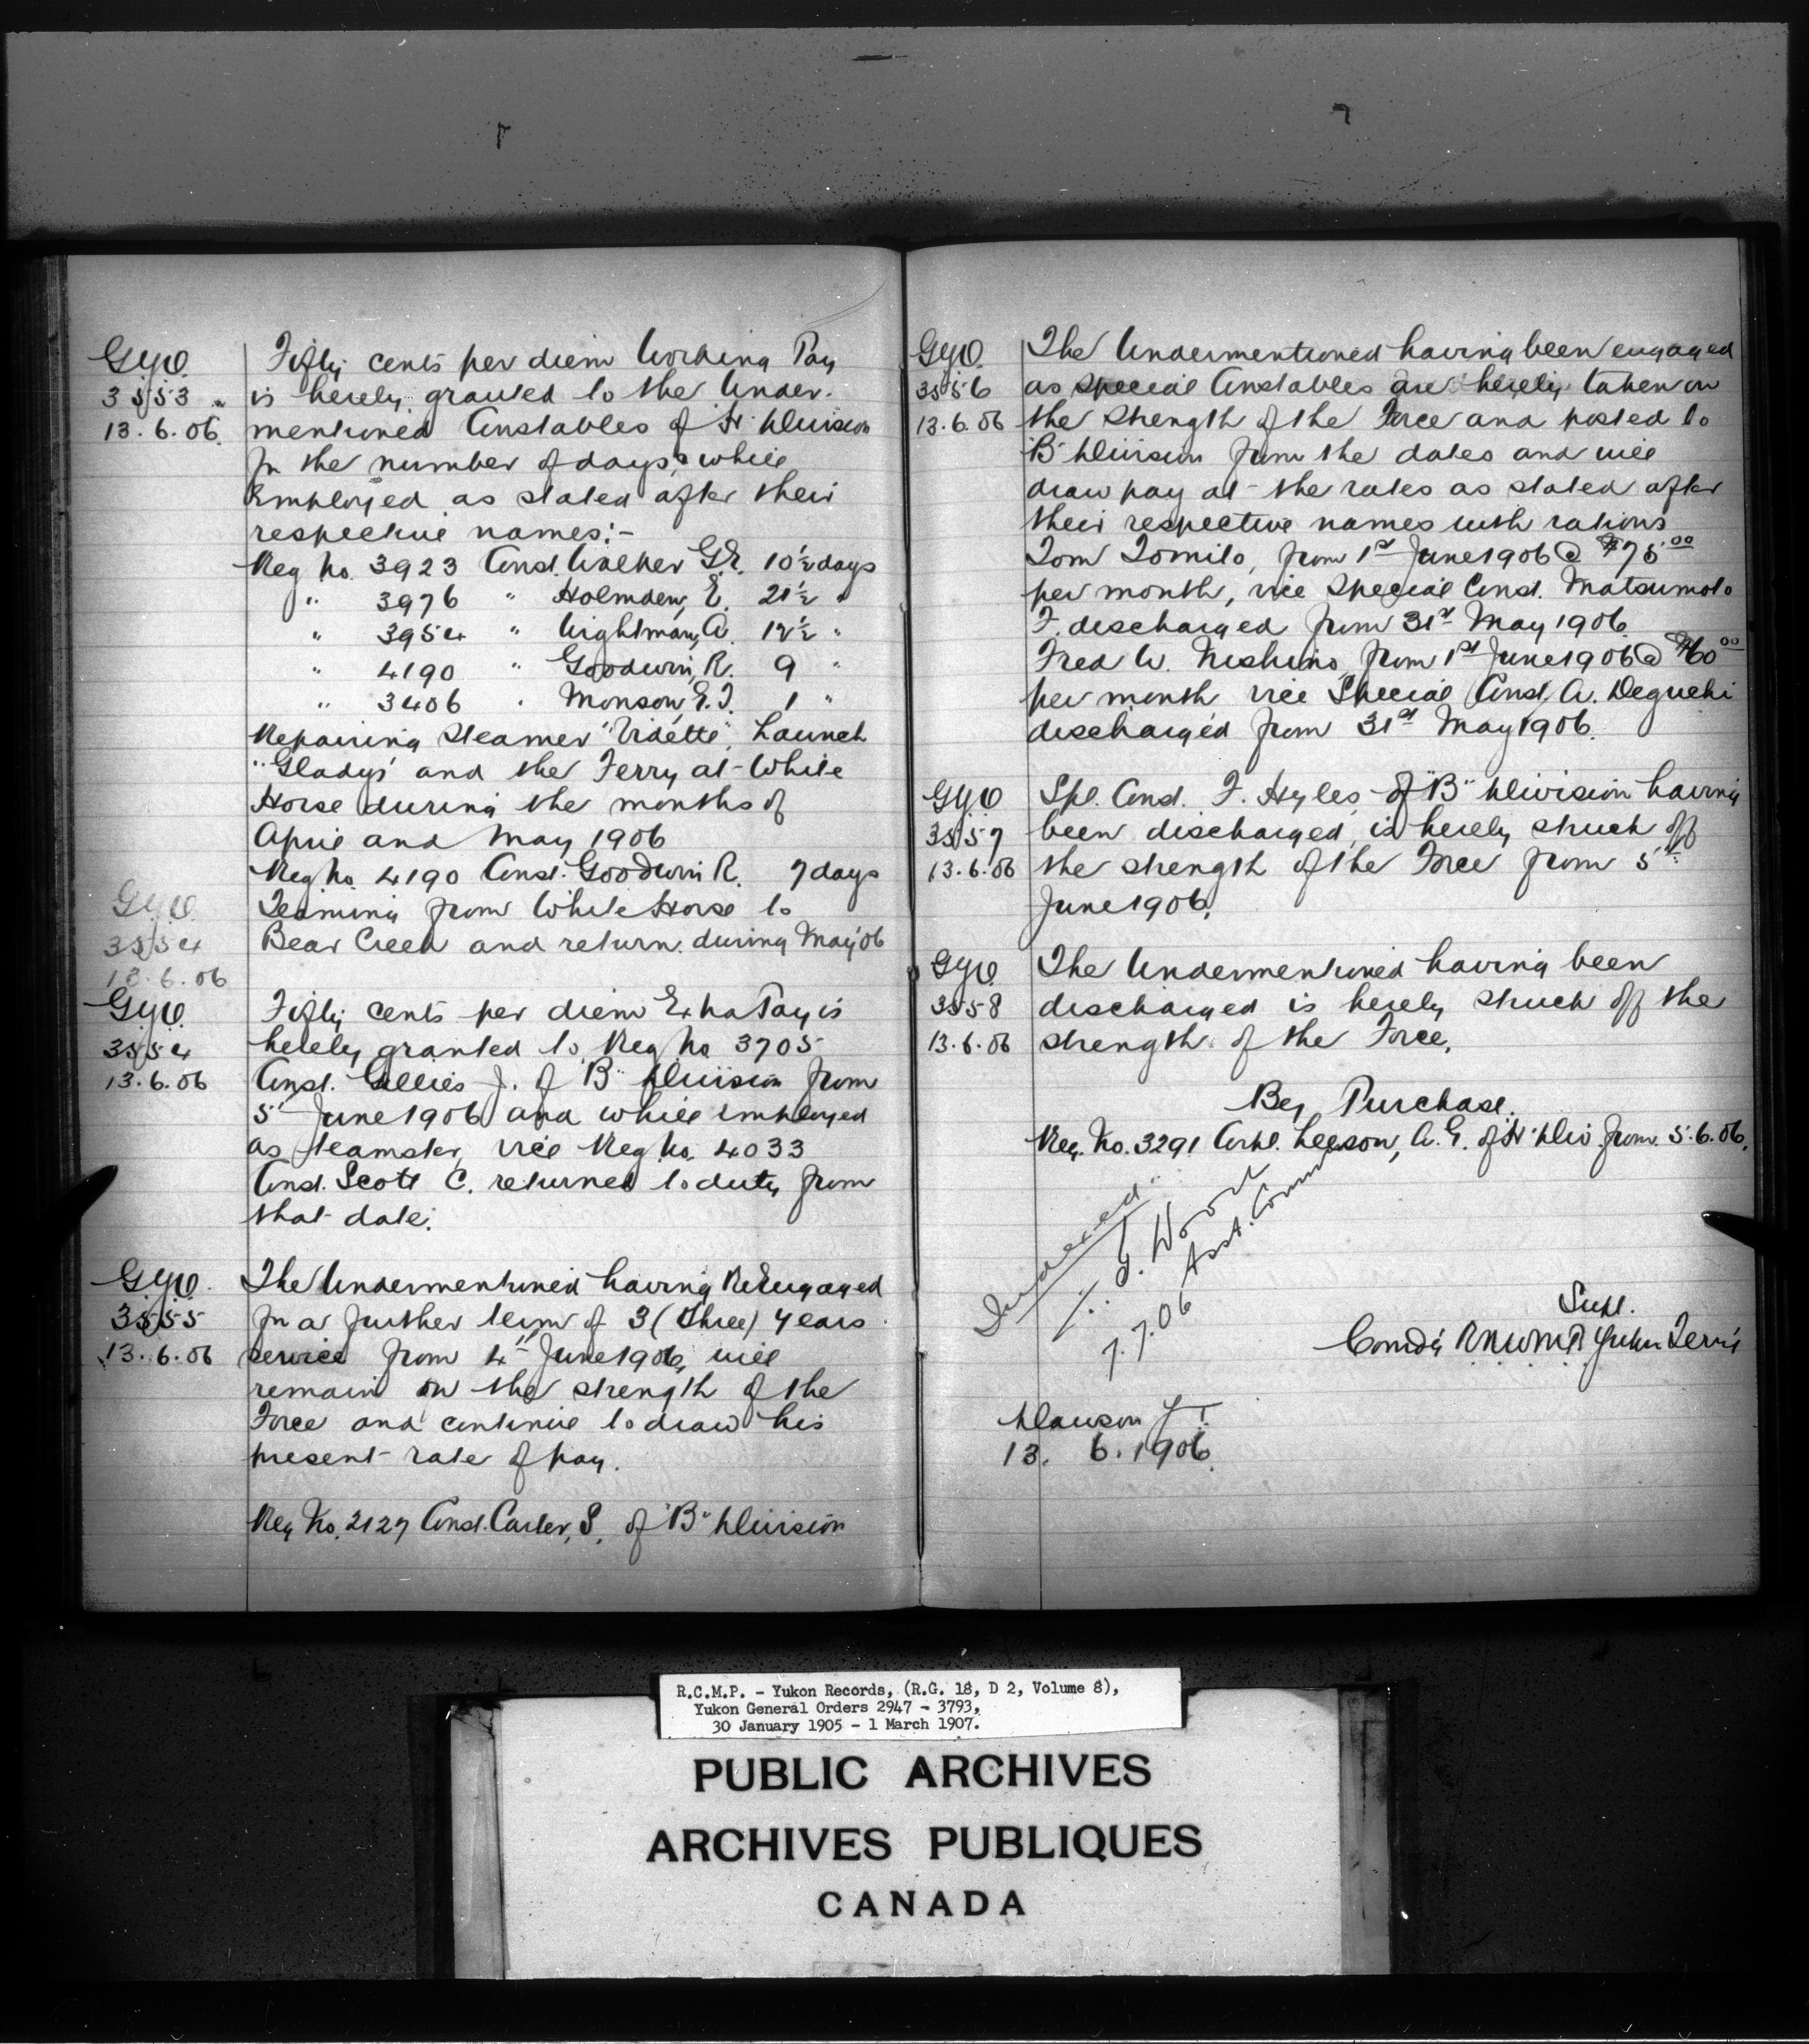 G.Y.O.
3553
13.6.06.
Fifty cents per diem Working Pay
is hereby granted to the Under-
mentioned Constables of "H" Division
for the number of days, while
Employed as stated after their
respective names:-
Reg No. 3923 Const. Walker G.E. 10½ days
" 3976 " Holmden, E. 21½ "
" 3954 " Wightman, A. 12½ "
" 4190 " Goodwin, R. 9 "
" 3406 " Monson, E.J. 1 "
Repairing Steamer "Vidette", Launch
"Gladys" and the Ferry at White
Horse during the months of
April and May 1906
Reg No. 4190 Const. Goodwin R. 7 days
Teaming from White Horse to
Bear Creek and return during May '06
G.Y.O.
3554
13.6.06
G.Y.O.
3554
13.6.06
Fifty cents per diem Extra Pay is
hereby granted to Reg No 3705
Const. Gillies J. of "B" Division from
5th June 1906 and while employed
as teamster, vice Reg. No. 4033
Const. Scott C. returned to duty from
that date.
G.Y.O.
3555
13.6.06
The Undermentioned having ReEngaged
for a further term of 3 (Three) Years
service from 4th June 1906, will
remain on the strength of the
Force and continue to draw his
present rate of pay.
Reg No. 2127 Const. Carter, S. of "B" Division
G.Y.O.
3556
13.6.06
The Undermentioned having been engaged
as Special Constables are hereby taken on
the strength of the Force and posted to
"B" Division from the dates and will
draw pay at the rates as stated after
their respective names with rations
Tom Tomito, from 1st June 1906 @ $75.00
per month, vice Special Const. Matsumoto
F. discharged from 31st May 1906.
Fred W. Nishino, from 1st June 1906 @ $60.00
per month vice Special Const. A. Deguchi
discharged from 31st May 1906.
G.Y.O
3557
13.6.06
Spl. Const. F. Hyles of "B" Division having
been discharged, is hereby struck off
the strength of the Force from 5th
June 1906.
G.Y.O.
3558
13.6.06
The Undermentioned having been
discharged is hereby struck off the
strength of the Force.
By Purchase.
Reg. No. 3291 Corpl. Leeson, A.G. of "H" Div. from 5.6.06.
Indexed.
Z.T. Wood
Asst. Comm
7.7.06
Supt.
Comd'g R.N.W.M.P. Yukon Terr'y
Dawson Y.T.
13. 6. 1906.
R.C.M.P. - Yukon Records, (R.G. 18, D 2, Volume 8),
Yukon General Orders 2947 - 3793,
30 January 1905 - 1 March 1907.
PUBLIC ARCHIVES
ARCHIVES PUBLIQUES
CANADA